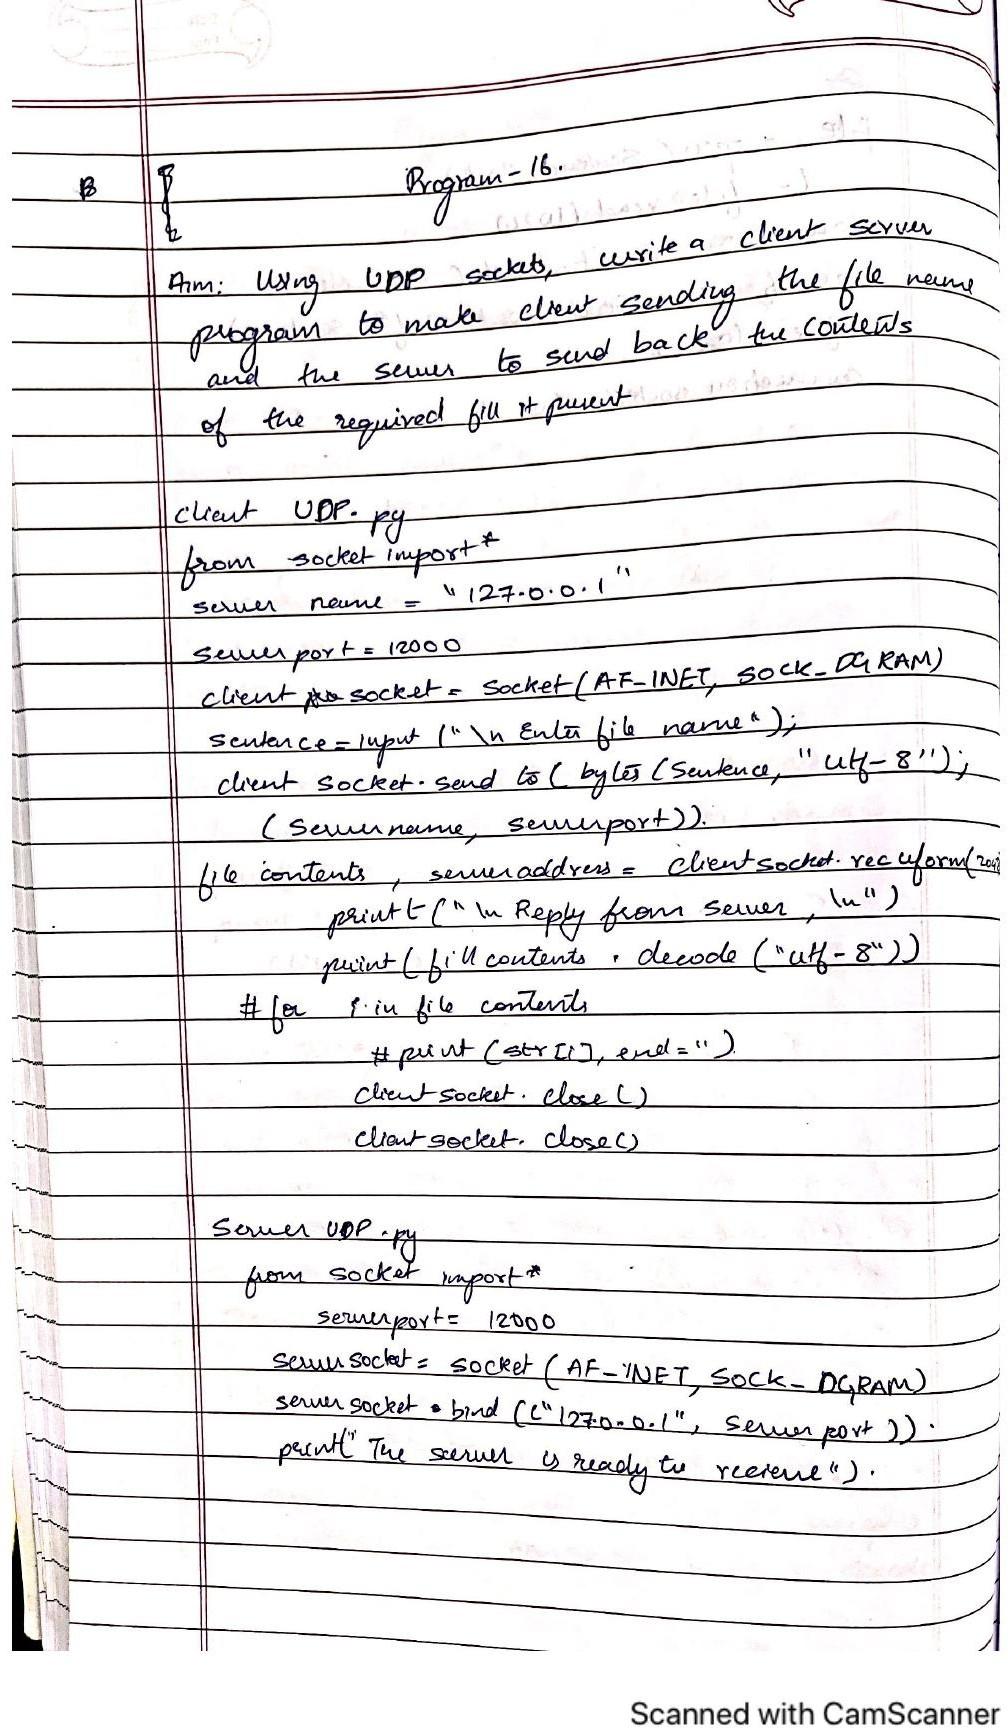 B
Program-16.
Aim: Using UDP sockets, write a client server
program to make client sending the file name
and the server to send back the contents
of the required fill it present
client UDP.py
from socket import*
server name = "127.0.0.1"
serverport = 12000
client socket = socket(AF-INET, SOCK_DGRAM)
sentence = input ("\n Enter file name");
client socket.send to( bytes (Sentence, "utf-8");
(servername, serverport)).
file contents, serveraddress = clientsocket.recuform(2048
print("\n Reply from server, \n")
print(fill contents . decode ("utf-8"))
# for i in file contents
# print (str[i], end='')
client socket. close()
client socket. close()
Server UDP.py
from socket import*
serverport= 12000
server socket = socket (AF-INET, SOCK-DGRAM)
server socket . bind (("127.0.0.1", server port )).
print(" The server is ready to recieve").
Scanned with CamScanner